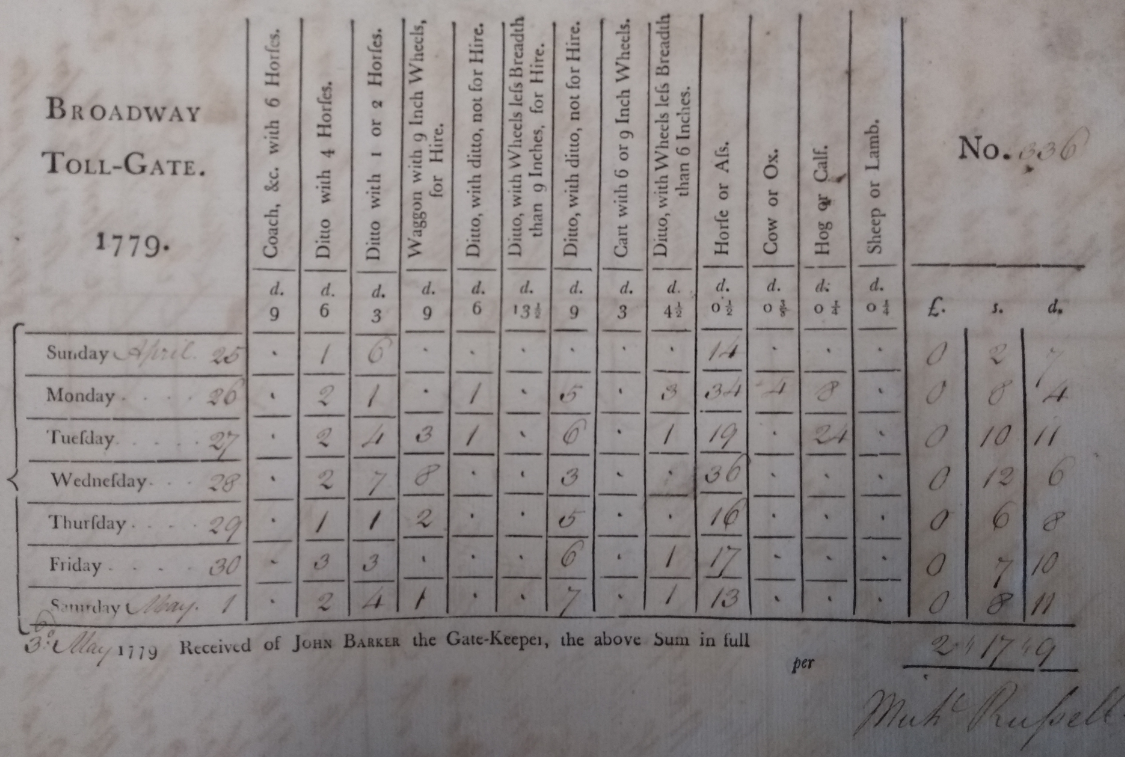 BROADWAY
TOLL-GATE.
1779.
Coach, &c. with 6 Horſes.
Ditto with 4 Horſes.
Ditto with 1 or 2 Horſes.
Waggon with 9 Inch Wheels,
for Hire.
Ditto, with ditto, not for Hire.
Ditto, with Wheels leſs Breadth
than 9 Inches, for Hire.
Ditto, with ditto, not for Hire.
Cart with 6 or 9 Inch Wheels.
Ditto, with Wheels leſs Breadth
than 6 Inches.
Horſe or Aſs.
Cow or Ox.
Hog or Calf.
Sheep or Lamb.
No. 336
d. d. d. d. d. d. d. d. d. d. d. d. d.
9 6 3 9 6 13½ 9 3 4½ 0½ 0⅜ 0¼ 0¼ £. s. d.
Sunday April. 25 · 1 6 · · · · · · 14 · · · 0 2 7
Monday . . . . 26 · 2 1 · 1 · 5 · 3 34 4 8 · 0 8 4
Tueſday . . . . 27 · 2 4 3 1 · 6 · 1 19 · 24 · 0 10 11
Wedneſday . . . 28 · 2 7 8 · · 3 · · 36 · · · 0 12 6
Thurſday . . . . 29 · 1 1 2 · · 5 · · 16 · · · 0 6 8
Friday . . . . 30 · 3 3 · · · 6 · 1 17 · · · 0 7 10
Saturday May. 1 · 2 4 1 · · 7 · 1 13 · · · 0 8 11
3d. May 1779 Received of JOHN BARKER the Gate-Keeper, the above Sum in full
per
2 " 17 " 9
Ruſsell